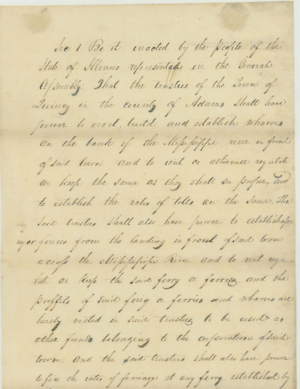 Sec 1 Be it enacted by the people of the
State of Illinois represented in the General
Assembly That the trustees of the Town of
Quincy in the county of Adams shall have
power to erect, build and establish wharves
on the bank of the Mississippi river in front
of said town and to rent or otherwise regulate
or keep the same as they shall see proper, and
to establish the rates of tolls on the same. The
said trustees shall also have power to establish a ferry
or ferries from the landing in front of said town
across the Mississippi River and to rent
or keep the said ferry or ferries and the
proffits of said ferry or ferries and wharves are
hereby vested in said trustees to be used as
other funds belonging to the corporation of said
town. And the said trustees shall also have power
to fix the rates of ferriage at any ferry established by